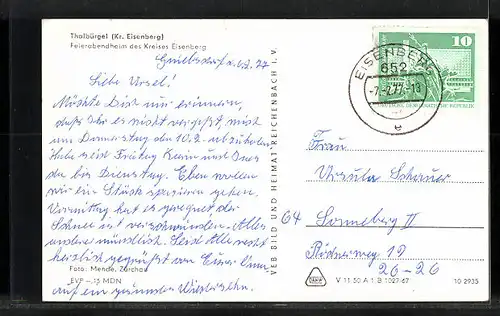 Thalbürgel (Kr. Eisenberg)
Feierabendheim des Kreises Eisenberg
Liebe Ursel!
Möchte Dich nur erinnern,
daß Ihr es nicht vergeßt, mich
am Donnerstag den 10.2. abzuholen.
Habe seit Freitag Karin und Ines
da bis Dienstag. Eben wollen
wir ein Stück spazieren gehen.
Vormittag hat es geregnet der
Schnee ist verschwunden. Alles
andere mündlich. Seid Alle recht
herzlich gegrüßt von Eurer Oma
auf ein gesundes Wiedersehn.
Foto: Mende, Zörchau
EVP -,15 MDN
VEB BILD UND HEIMAT REICHENBACH I. V.
10
EISENBERG
652
-7.-2.77-18
e
DEUTSCHE DEMOKRATISCHE REPUBLIK
Frau
Ursula Schauer
64 Sonneberg II
19
26-26
V 11 50 A 1 B 1027/67
10 2935